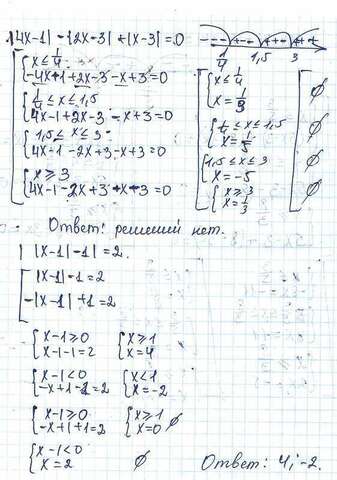 |4x-1| - |2x-3| + |x-3| = 0
1/4 1,5 3
{ x ≤ 1/4
-4x+1+2x-3-x+3=0
{ 1/4 ≤ x ≤ 1,5
4x-1+2x-3-x+3=0
{ 1,5 ≤ x ≤ 3
4x-1-2x+3-x+3=0
{ x ≥ 3
4x-1-2x+3+x-3=0
{ x ≤ 1/4
x = 1/3 ∅
{ 1/4 ≤ x ≤ 1,5
x = 1/5 ∅
{ 1,5 ≤ x ≤ 3
x = -5 ∅
{ x ≥ 3
x = 1/3 ∅
Ответ: решений нет.
| |x-1| - 1 | = 2.
[ |x-1| - 1 = 2
-|x-1| + 1 = 2
{ x-1 ≥ 0 { x ≥ 1
x-1-1=2 x = 4
{ x-1 < 0 { x < 1
-x+1-1=2 x = -2
{ x-1 ≥ 0 { x ≥ 1
-x+1+1=2 x = 0 ∅
{ x-1 < 0
x = 2 ∅
Ответ: 4; -2.